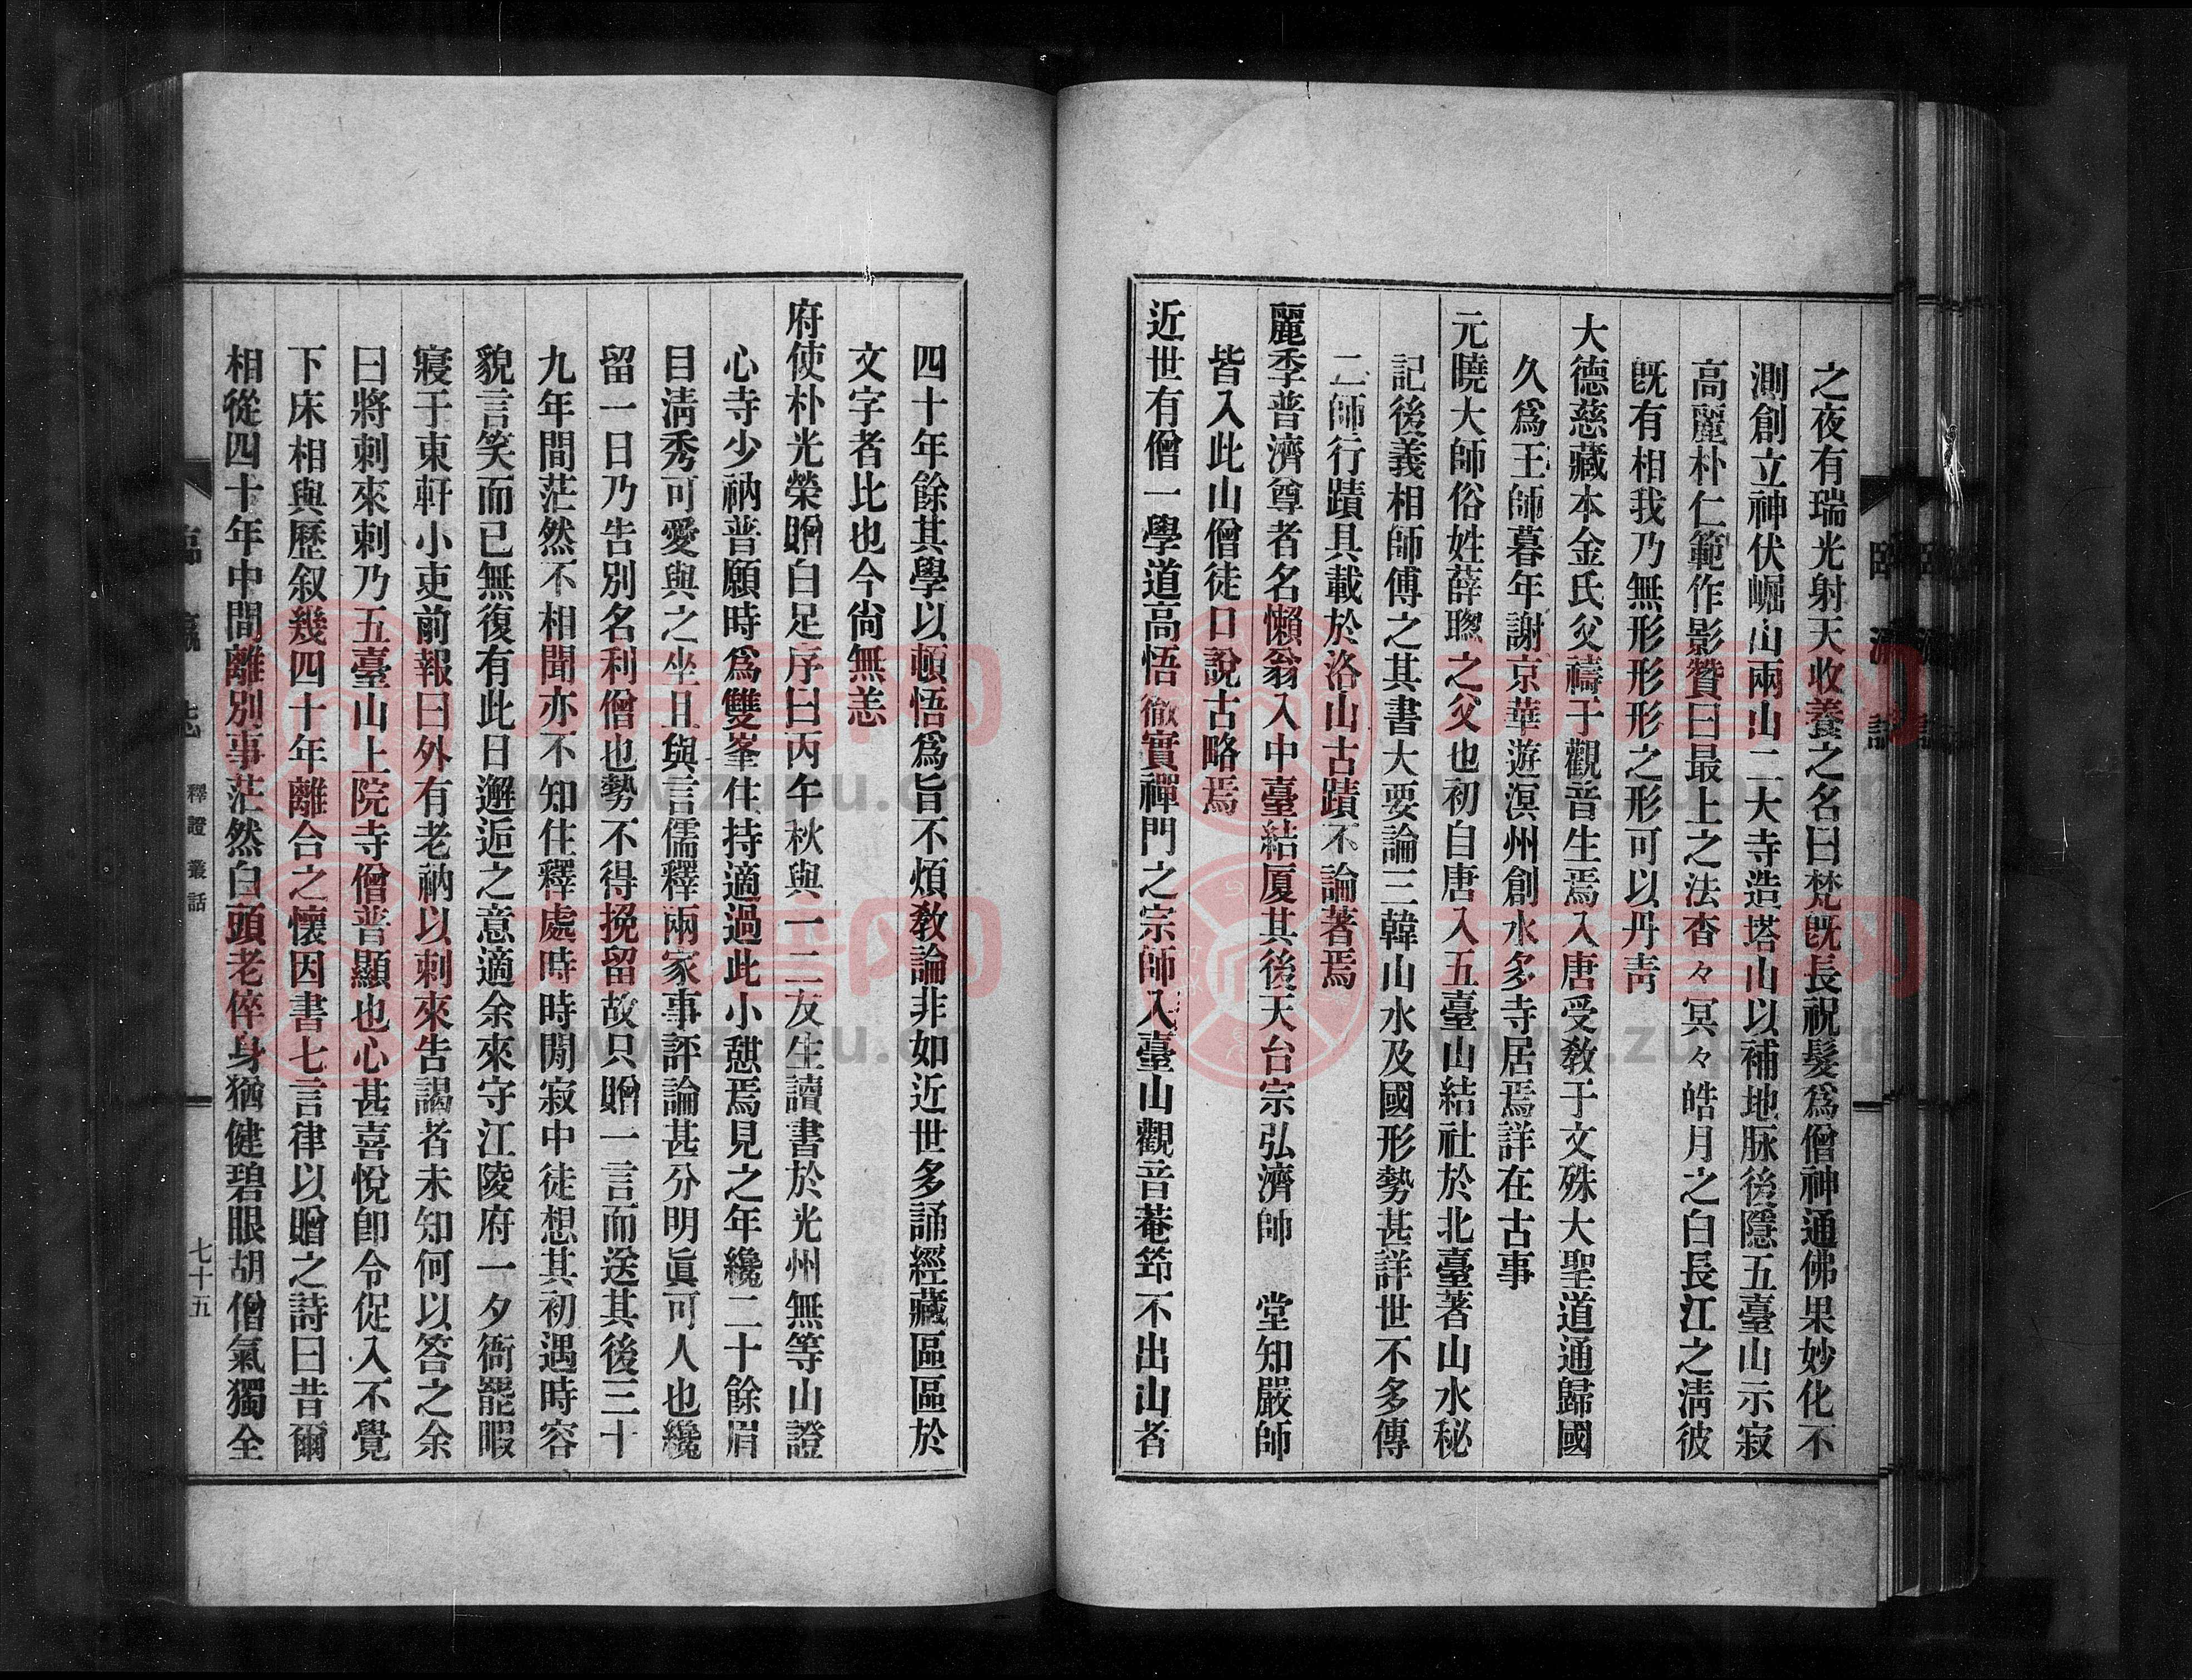 之夜有瑞光射天收養之名曰梵旣長祝髮爲僧神通佛果妙化不
測創立神伏崛山兩山二大寺造塔山以補地脉後隱五臺山示寂
高麗朴仁範作影贊曰最上之法杳々冥々皓月之白長江之淸彼
旣有相我乃無形形形之形可以丹靑
大德慈藏本金氏父禱于觀音生焉入唐受敎于文殊大聖道通歸國
久爲王師暮年謝京華遊溟州創水多寺居焉詳在古事
元曉大師俗姓薛聰之父也初自唐入五臺山結社於北臺著山水秘
記後義相師傅之其書大要論三韓山水及國形勢甚詳世不多傳
二師行蹟具載於洛山古蹟不論著焉
麗季普濟尊者名懶翁入中臺結厦其後天台宗弘濟師　堂知嚴師
皆入此山僧徒口說古略焉
近世有僧一學道高悟徹實禪門之宗師入臺山觀音菴筇不出山者
四十年餘其學以頓悟爲旨不煩敎論非如近世多誦經藏區區於
文字者比也今尙無恙
府使朴光榮贈白足序曰丙午秋與一二友生讀書於光州無等山證
心寺少衲普願時爲雙峯住持適過此小憩焉見之年纔二十餘眉
目淸秀可愛與之坐且與言儒釋兩家事評論甚分明眞可人也纔
留一日乃告別名利僧也勢不得挽留故只贈一言而送其後三十
九年間茫然不相聞亦不知住釋處時時閒寂中徒想其初遇時容
貌言笑而已無復有此日邂逅之意適余來守江陵府一夕衙罷暇
寢于東軒小吏前報曰外有老衲以刺來告謁者未知何以答之余
曰將刺來刺乃五臺山上院寺僧普顯也心甚喜悅卽令促入不覺
下床相與歷叙幾四十年離合之懷因書七言律以贈之詩曰昔爾
相從四十年中間離別事茫然白頭老倅身猶健碧眼胡僧氣獨全
臨瀛志　釋證叢話　七十五
www.zupu.cn
www.zupu.cn
www.zupu.cn
www.zupu.cn